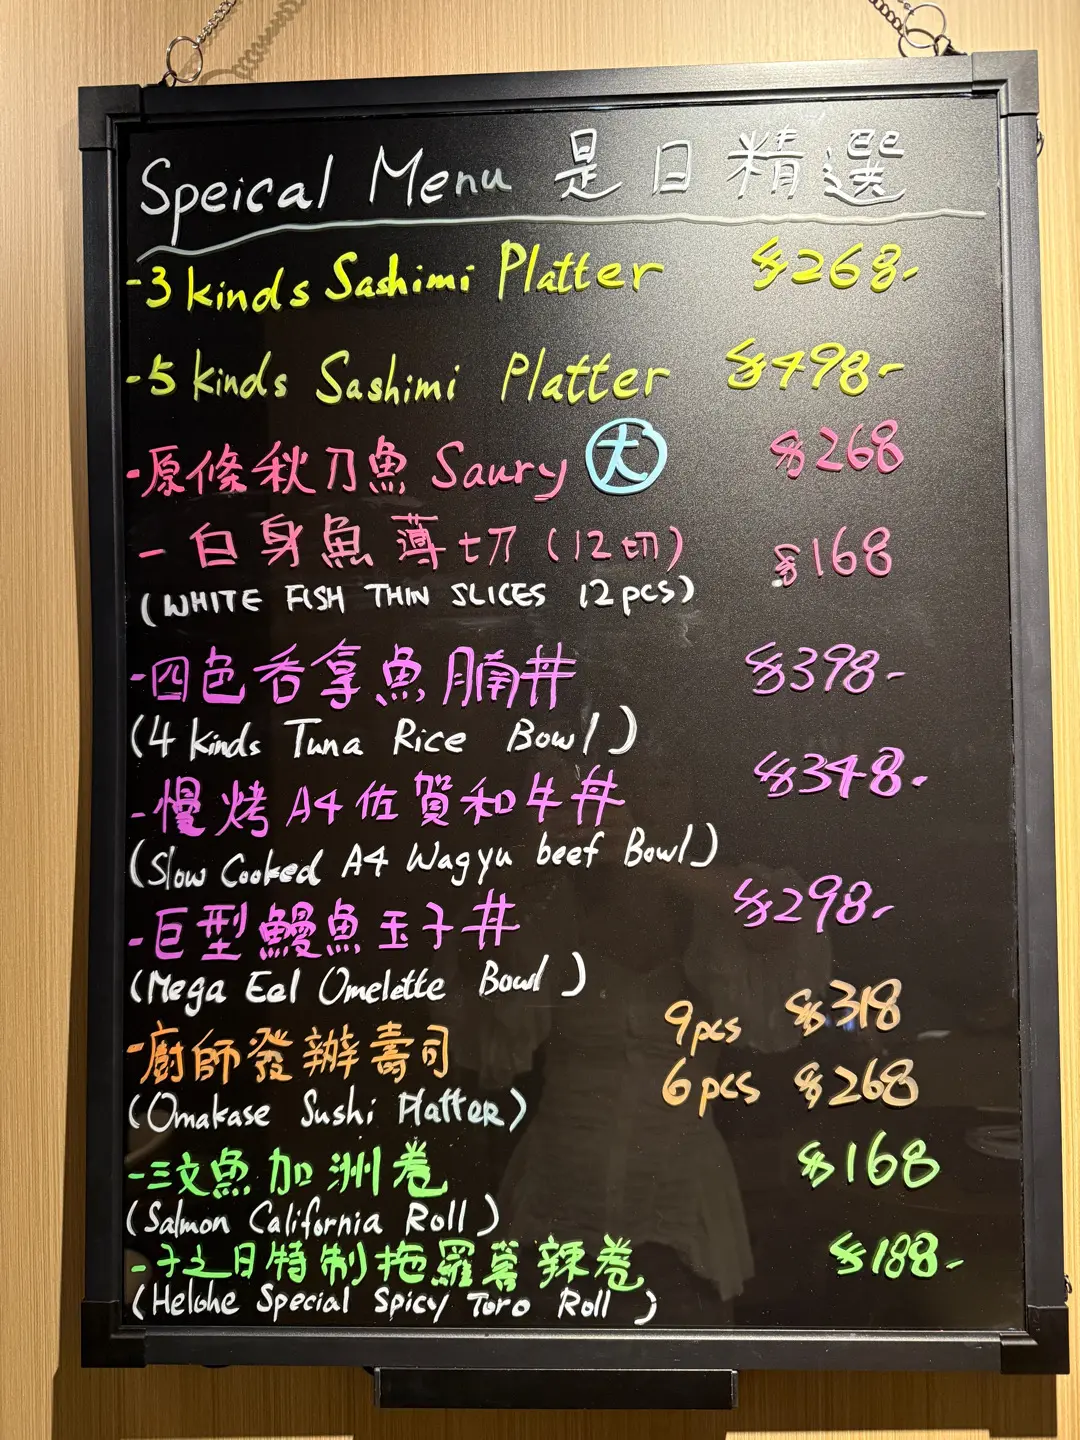 Speical Menu 是日精選
-3 kinds Sashimi Platter $268-
-5 kinds Sashimi Platter $498-
-原條秋刀魚 Saury 大 $268
-白身魚薄切 (12切) $168
(WHITE FISH THIN SLICES 12pcs)
-四色吞拿魚腩丼 $398-
(4 kinds Tuna Rice Bowl)
-慢烤A4佐賀和牛丼 $348-
(Slow Cooked A4 Wagyu beef Bowl)
-巨型鰻魚玉子丼 $298-
(Mega Eel Omelette Bowl)
-廚師發辦壽司 9pcs $318
6pcs $268
(Omakase Sushi Platter)
-三文魚加洲卷 $168
(Salmon California Roll)
-子之日特制拖羅蓉辣卷 $188-
(Helohe Special Spicy Toro Roll)